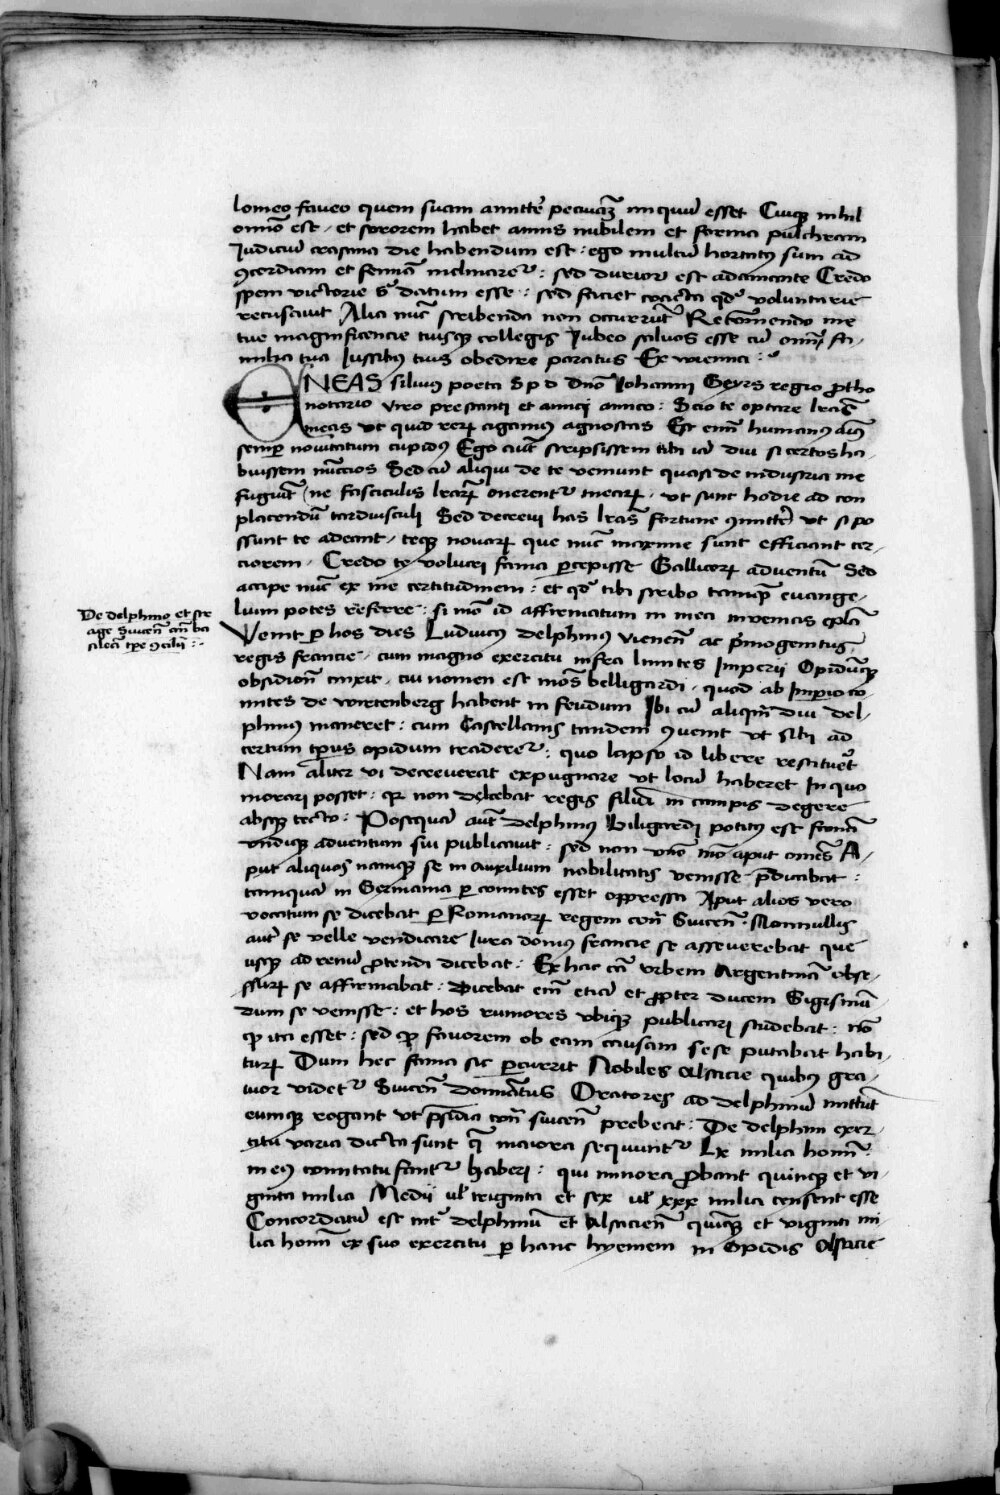 lomeo faveo quem suam amittẽ pecuniã iniquũ esset Cuiqʒ nihil
omĩo est, et sororem habet annis nubilem et forma pulchram
Judiciũ crastina die habendum est: ego multũ hortatꝰ sum ad
ꝯcordiam et feminã inclinareť: sed durior est adamante Credo
spem victorie sꝰ datum esse: sed faciet coacta qđ voluntarie
recusavit Alia nũc scribenda non occurrũt Recõmendo me
tue magnificencie tuisqʒ collegis Jubeo salvos esse cũ omĩ fa,
milia tua Jussibꝰ tuis obedire paratus Ex wienna:
ENEAS silvius poeta S p d dño Johanni Geyrs regio ꝓtho
notario viro prestanti et amici amico: Scio te optare lras
meas ut quid reꝝ agamus agnoscas Est enĩ humanꝰ aĩꝰ
semꝑ novitatum cupidus Ego aut̃ scripsissem tibi iã diu si certos ha,
buissem nũccios Sed cũ aliqui de te veniunt quasi de industria me
fugiũt, ne fasciculis lraꝝ onerenť meaꝝ, ut sunt hodie ad con
placendũ tardiusculi Sed decrevi has lras fortune ꝯmittẽ ut si po
ssunt te adeant, teqʒ novaꝝ que nũc maxime sunt efficiant cer,
ciorem, Credo te volucri fama ꝑcepisse Gallicoꝝ adventũ Sed
accipe nũc ex me certitudinem: et qđ tibi scribo tamqʒ̃ euange,
lium potes referre: si mõ id affirmatum in mea invenias
De delphino et stra
age Suicẽn añ ba
sileã tꝑe ꝯcilij:
Venit ꝑ hos dies Ludvicus delphinus vienẽn ac p̃mogenitus
regis francie, cum magno exercitu infra limites Imperij Opidũqʒ
obsidioñ cinxit, cui nomen est mõs belligardi, quod ab Imꝑio co
mites de wirtenberg habent in feudum Ibi cũ aliqʒ̃ diu del,
phinus maneret: cum Castellanis tandem ꝯvenit ut sibi ad
certum tꝑus opidum tradereť: quo lapso id libere restitueret
Nam aliter vi decreverat expugnare ut locũ haberet In quo
morari posset: qꝛ non decebat regis filiũ in campis degere
absqʒ tecto: Postquã aut̃ delphinus biligardi potitꝰ est famã
undiqʒ adventum sui publicavit: sed non uno mõ aput omẽs A,
put aliquos namqʒ se in auxilium nobilitatis venisse p̃dicabat:
tamquã in Germania ꝑ comites esset oppressa Aput alios vero
vocatum se dicebat ꝑ Romanoꝝ regem coñ Suicẽn: Nonnullis
aut̃ se velle vendicare Jura domus francie se asseverebat que
usqʒ ad renũ ꝓtendi dicebat: Ex hac cã urbem Argentinã obse,
ssuꝝ se affirmabat: Dicebat enĩ etiã et ꝓpter ducem Sigismũ
dum se venisse: et hos rumores ubiqʒ publicari studebat: nõ
ꝙ ita esset: sed ꝙ favorem ob eam causam sese putabat habi,
tuꝝ Dum hec fama sic ꝑcurrit Nobiles Alsacie quibꝰ gra,
vior videť Suicẽn dominatus Oratores ad delphinũ mittũt
eumqʒ rogant ut p̃sidia coñ suicẽn prebeat: De delphini exer,
citu varia dicta sunt q̃ maiora sequunť Lx milia homĩ:
in eiꝰ comitatu fanť haberi: qui minora ꝓbant quinqʒ et vi,
ginta milia Medij ul̃ triginta et sex ul̃ xxx milia censent esse
Concordatũ est int̃ delphinũ et Alsaciẽn quĩqʒ et viginti mi,
lia homĩ ex suo exercitu ꝑ hanc hyemem in Opidis Alsacie